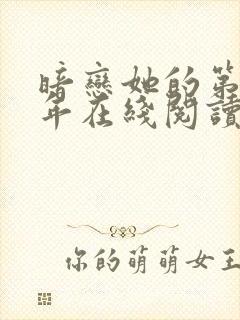 暗戀她的第
年在綫閱讀
你的萌萌女王